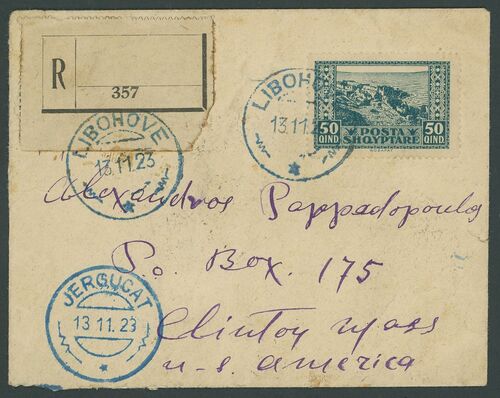 R
357
LIBOHOVE
13.11.23
LIBOHOVE
13.11.23
50 QIND.
POSTA SHQYPTARE
50 QIND.
Alexandros Pappadopoulos
P.o. Box. 175
Clinton Mass
U-S. America
JERGUCAT
13 11. 23